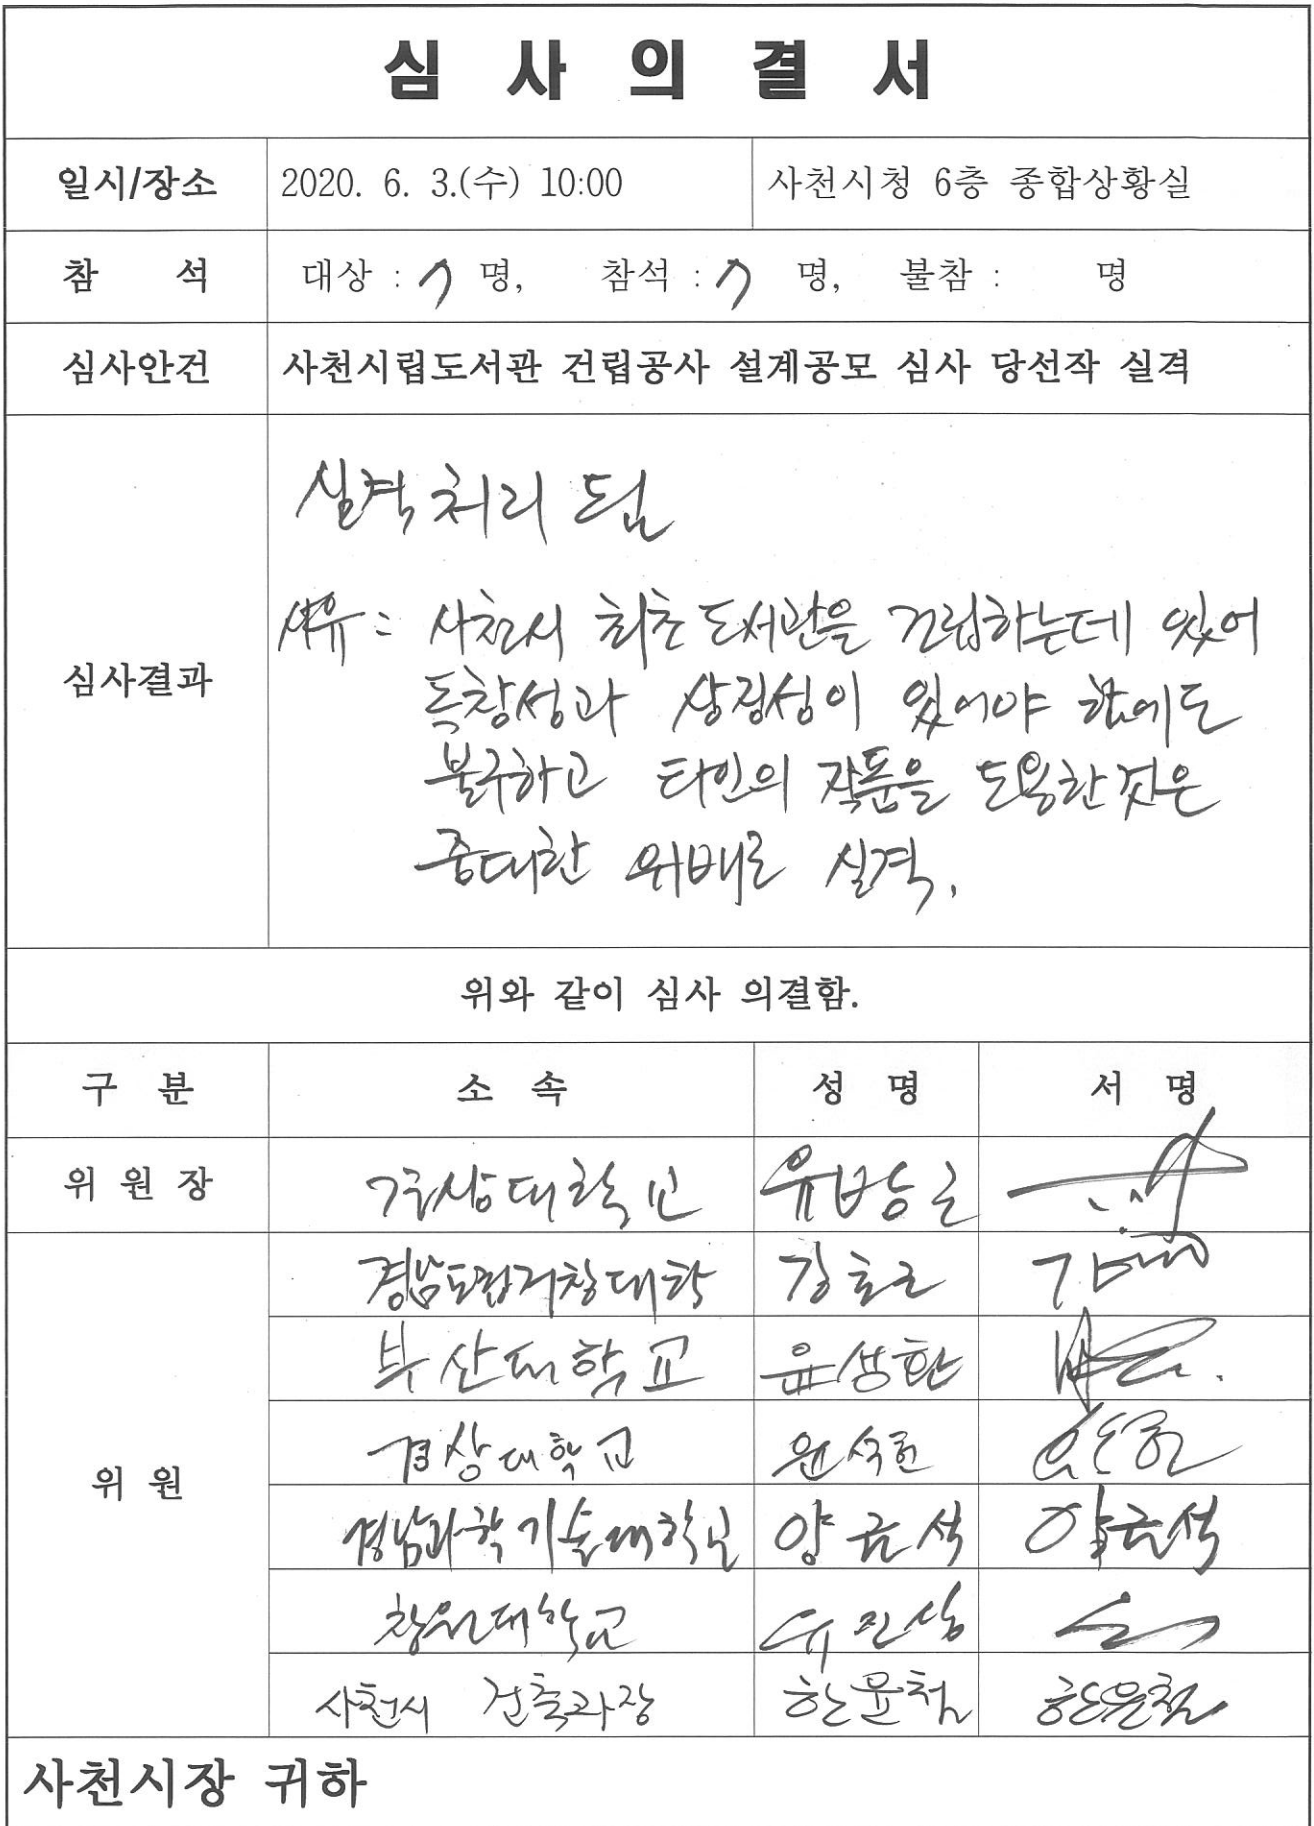 심 사 의 결 서
일시/장소 2020. 6. 3.(수) 10:00 사천시청 6층 종합상황실
참 석 대상 : 7 명, 참석 : 7 명, 불참 : 명
심사안건 사천시립도서관 건립공사 설계공모 심사 당선작 실격
심사결과
실격처리 됨
사유 : 사천시 최초 도서관을 건립하는데 있어
독창성과 상징성이 있어야 함에도
불구하고 타인의 작품을 도용한것은
중대한 위배로 실격.
위와 같이 심사 의결함.
구 분 소 속 성 명 서 명
위 원 장 경상대학교 유방근
위 원
경남도립거창대학 김효근
부산대학교 윤성환
경상대학교 윤석헌
경남과학기술대학교 양금석 양금석
창원대학교 유진상
사천시 건축과장 한윤철 한윤철
사천시장 귀하